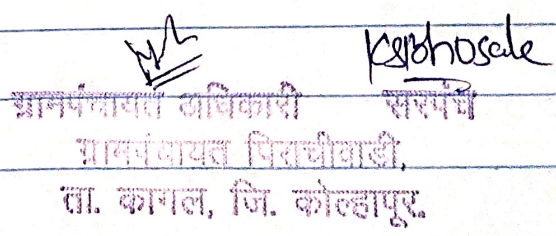 KSBhosale
ग्रामपंचायत अधिकारी सरपंच
ग्रामपंचायत पिराचीवाडी,
ता. कागल, जि. कोल्हापूर.